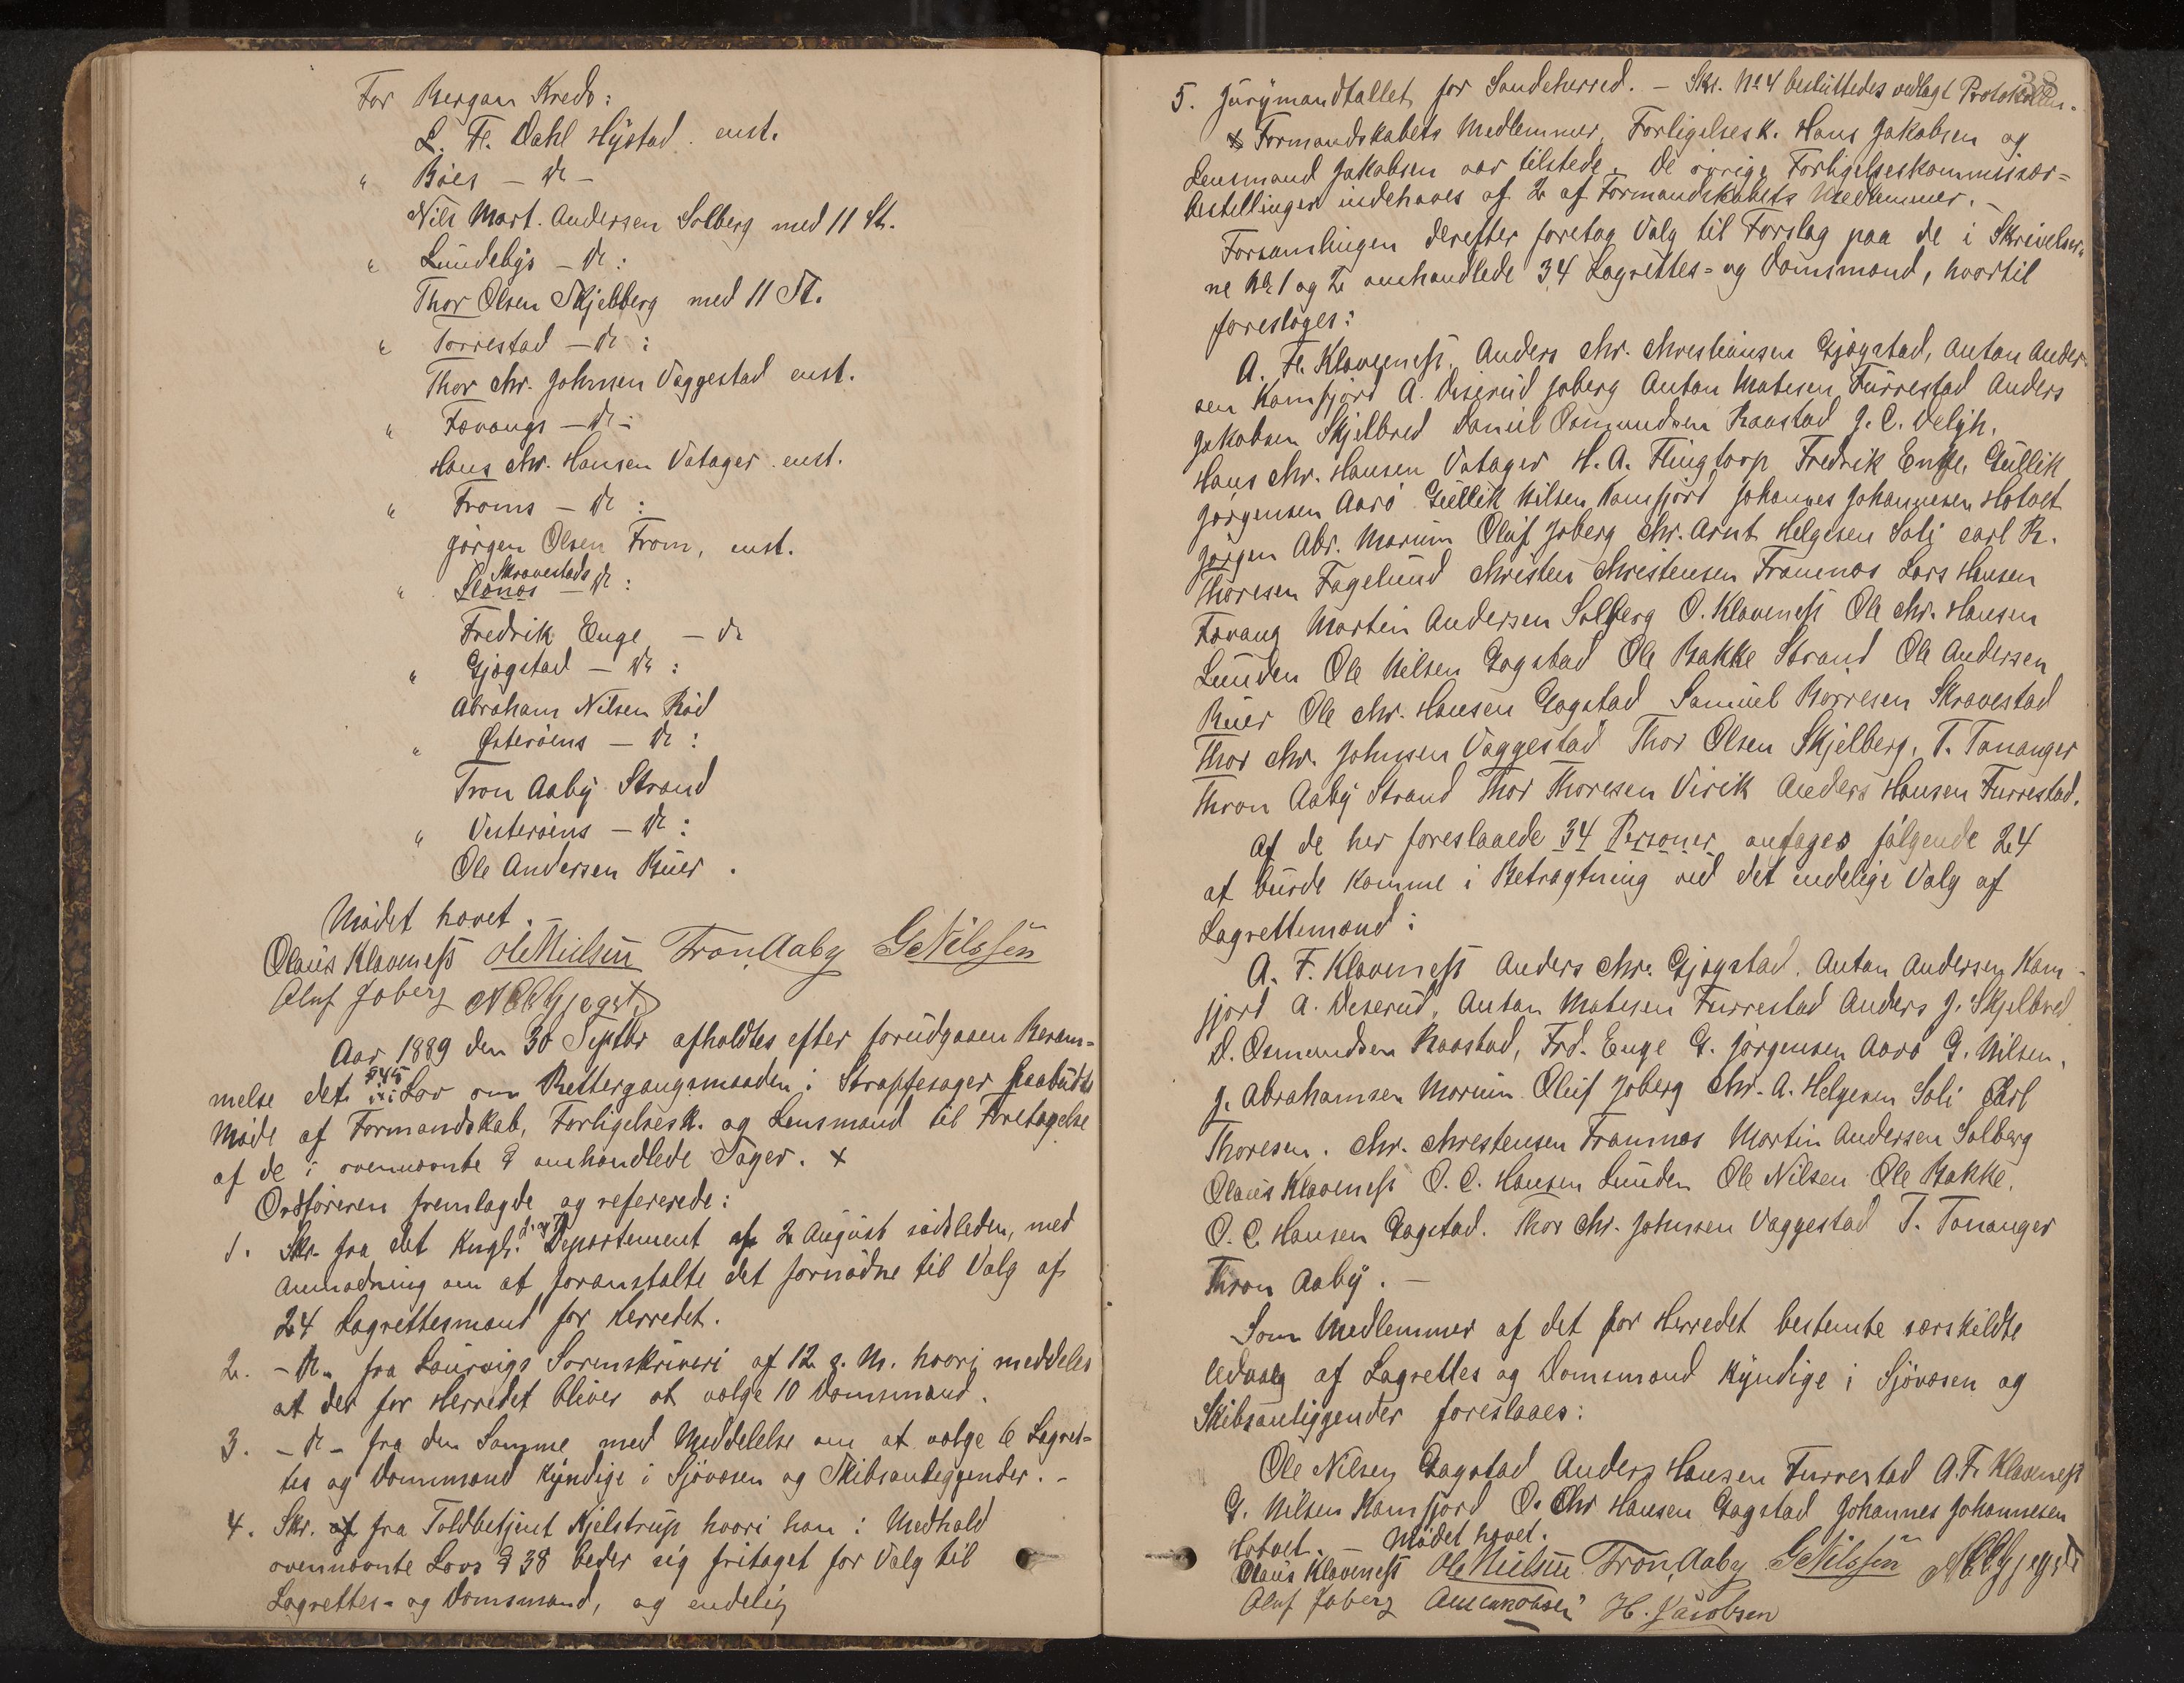 For Bergan Kreds:
L. Fr. Dahl Hystad enst.
" Bøes - do -
Nils Mart. Andersen Solberg med 11 St.
" Lundebys - do :
Thor Olsen Skjelberg med 11 St.
" Torrestad - do :
Thor Chr. Johnsen Vaggestad enst.
" Fævangs - do :
Hans Chr. Hansen Vatager enst.
" Froms - do :
Jørgen Olsen From, enst.
Skravestads
" Lønøs - do :
Fredrik Enge - do
" Gjøgstad - do :
Abraham Nilsen Rød
" Østerøens - do :
Tron Aaby Strand
" Vesterøens - do :
Ole Andersen Buer.
Mødet hævet.
Olaus Klaveness Ole Nielsen Tron Aaby G Nilssen
Oluf Joberg
Aar 1889 den 30 Septbr afholdtes efter forudgaaen Beram-
§45
melse det i Lov om Rettergangsmaaden i Straffesager paabudte
Møde af Formandskab, Forligelsesk. og Lensmand til Foretagelse
af de i ovennævnte § omhandlede Sager. x
Ordføreren fremlagde og refererede:
1. Skr. fra det Kngl. Departement af 2 August sidstleden, med
Anmodning om at foranstalte det fornødne til Valg af
24 Lagrettesmænd for Herredet.
2. - do fra Laurvigs Sorenskriveri af 12 s. M. hvori meddeles
at der for Herredet bliver at vælge 10 Domsmænd.
3. - do - fra den Samme med Meddelelse om at vælge 6 Lagret-
tes og Domsmænd kyndige i Sjøvæsen og Skibsanliggender. -
4. Skr. af fra Toldbetjent Kjelstrup hvori han i Medhold
ovennævnte Lovs § 38 beder sig fritaget for Valg til
Lagrettes- og Domsmand, og endelig
38
5. Jurymandtallet for Sandeherred. - Skr. No 4 besluttedes vedlagt Protokollen.
x Formandskabets Medlemmer, Forligelsesk. Hans Jakobsen og
Lensmand Jakobsen var tilstede. De øvrige Forligelseskommissær=
bestillinger indehaves af 2 af Formandskabets Medlemmer. -
Forsamlingen derefter foretog Valg til Forslag paa de i Skrivelser-
ne No 1 og 2 omhandlede 34 Lagrettes- og Domsmænd, hvortil
foresloges:
A. Fr. Klaveness, Anders Chr. Christiansen Gjøgstad, Anton Ander-
sen Kamfjord A. Diserud Joberg Anton Matisen Furrestad Anders
Jakobsen Skjelbred Daniel Osmundsen Raastad J. C. Veligh.
Hans Chr. Hansen Vatager H. A. Flingtorp Fredrik Enge, Gullik
Jørgensen Aarø Gullik Nilsen Kamfjord Johannes Johannesen Hotvet
Jørgen Abr. Marum Oluf Joberg Chr. Arnt Helgesen Soli Carl R.
Thoresen Fagelund Christen Christensen Framnæs Lars Hansen
Fævang Martin Andersen Solberg O. Klaveness Ole Chr. Hansen
Lunden Ole Nilsen Gogstad Ole Bakke Strand Ole Andersen
Buer Ole Chr. Hansen Gogstad Samuel Børresen Skravestad
Thor Chr. Johnsen Vaggestad Thor Olsen Skjelberg, T. Tananger
Thron Aaby Strand Thor Thoresen Virik Anders Hansen Furrestad.
Af de her foreslaaede 34 Personer antages følgende 24
at burde komme i Betragtning ved det endelige Valg af
Lagrettemænd:
A. F. Klaveness Anders Chr. Gjøgstad. Anton Andersen Kam-
fjord A. Deserud, Anton Matisen Furrestad Anders J. Skjelbred
D. Osmundsen Raastad, Frd. Enge G. Jørgensen Aarø G. Nilsen,
J. Abrahamsen Marum Oluf Joberg Chr. A. Helgesen Soli Carl
Thoresen. Chr. Christensen Framnæs Martin Andersen Solberg
Olaus Klaveness O. C. Hansen Lunden Ole Nilsen Ole Bakke.
O. C. Hansen Gogstad. Thor Chr. Johnsen Vaggestad T. Tananger
Thron Aaby. -
Som Medlemmer af det for Herredet bestemte særskildte
Udvalg af Lagrettes og Domsmænd kyndige i Sjøvæsen og
Skibsanliggender foreslaaes:
Ole Nilsen Gogstad Anders Hansen Furrestad A. F. Klaveness
G. Nilsen Kamfjord O. Chr Hansen Gogstad Johannes Johannesen
Hotvet. - Mødet hævet.
Olaus Klaveness Ole Nielsen Tron Aaby G Nilssen
Oluf Joberg H. Jacobsen